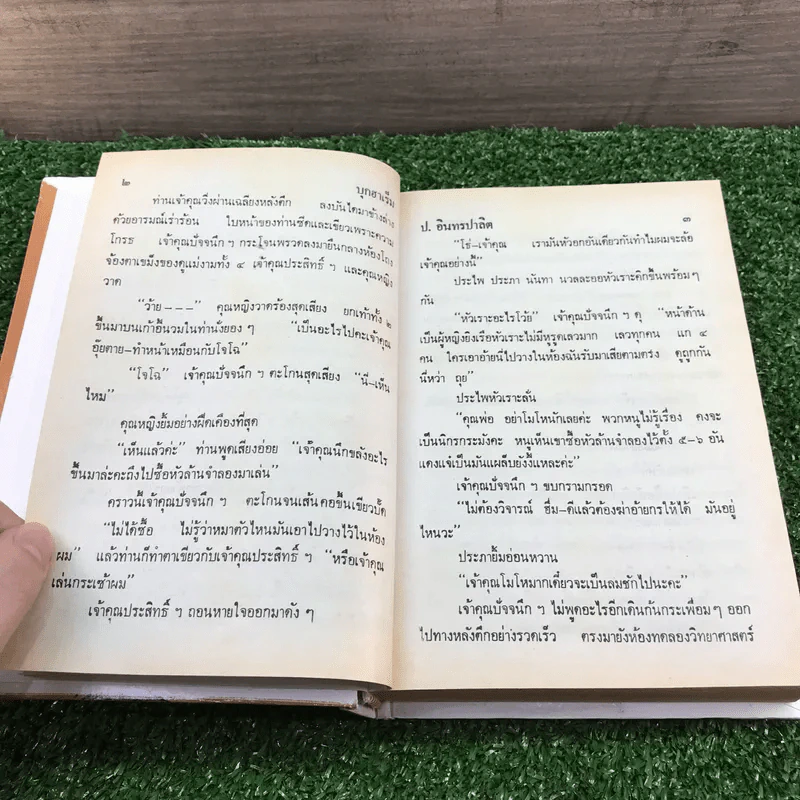 ๒
บุกฮาเร็ม
ท่านเจ้าคุณวิ่งผ่านเฉลียงหลังตึก ลงบันไดมาข้างล่าง
ด้วยอารมณ์เร่าร้อน ใบหน้าของท่านซีดและเขียวเพราะความ
โกรธ เจ้าคุณปัจจนึก ฯ กระโจนพรวดลงมายืนกลางห้องโถง
จ้องตาเขม็งของคู่แม่งามทั้ง ๔ เจ้าคุณประสิทธิ์ ฯ และคุณหญิง
วาด
“ว้าย - - -” คุณหญิงวาดร้องสุดเสียง ยกเท้าทั้ง ๒
ขึ้นมาบนเก้าอี้นวมในท่านั่งยอง ๆ “เป็นอะไรไปคะเจ้าคุณ
อุ๊ยตาย-ทำหน้าเหมือนกับโจโฉ”
“โจโฉ” เจ้าคุณปัจจนึก ฯ ตะโกนสุดเสียง “นี่-เห็น
ไหม”
คุณหญิงยิ้มอย่างฝืดเคืองที่สุด
“เห็นแล้วค่ะ” ท่านพูดเสียงอ่อย “เจ้าคุณนึกขลังอะไร
ขึ้นมาล่ะคะถึงไปซื้อหัวล้านจำลองมาเล่น”
คราวนี้เจ้าคุณปัจจนึก ฯ ตะโกนจนเส้นคอขึ้นเขียวปั้ด
“ไม่ได้ซื้อ ไม่รู้ว่าหมาตัวไหนมันเอาไปวางไว้ในห้อง
ผม” แล้วท่านก็ทำตาเขียวกับเจ้าคุณประสิทธิ์ ฯ “หรือเจ้าคุณ
เล่นกระเซ้าผม”
เจ้าคุณประสิทธิ์ ฯ ถอนหายใจออกมาดัง ๆ
ป. อินทรปาลิต
๓
“โธ่-เจ้าคุณ เรามันหัวอกอันเดียวกันทำไมผมจะล้อ
เจ้าคุณอย่างนี้”
ประไพ ประภา นันทา นวลละออหัวเราะคิกขึ้นพร้อมๆ
กัน
“หัวเราะอะไรโว้ย” เจ้าคุณปัจจนึก ฯ ดุ “หน้าด้าน
เป็นผู้หญิงยิงเรือหัวเราะไม่มีหูรูดเลวมาก เลวทุกคน แก ๔
คน ใครเอาอ้ายนี่ไปวางในห้องฉันรับมาเสียตามตรง ดูถูกกัน
นี่หว่า ถุย”
ประไพหัวเราะลั่น
“คุณพ่อ อย่าโมโหนักเลยค่ะ พวกหนูไม่รู้เรื่อง คงจะ
เป็นนิกรกระมังคะ หนูเห็นเขาซื้อหัวล้านจำลองไว้ตั้ง ๕-๖ อัน
แดงแจ๋เป็นมันแผล็บยังงี้แหละค่ะ”
เจ้าคุณปัจจนึก ฯ ขบกรามกรอด
“ไม่ต้องวิจารณ์ ฮึ่ม-ดีแล้วต้องฆ่าอ้ายกรให้ได้ มันอยู่
ไหนวะ”
ประภายิ้มอ่อนหวาน
“เจ้าคุณโมโหมากเดี๋ยวจะเป็นลมชักไปนะคะ”
เจ้าคุณปัจจนึก ฯ ไม่พูดอะไรอีกเดินก้นกระเพื่อมๆ ออก
ไปทางหลังตึกอย่างรวดเร็ว ตรงมายังห้องทดลองวิทยาศาสตร์